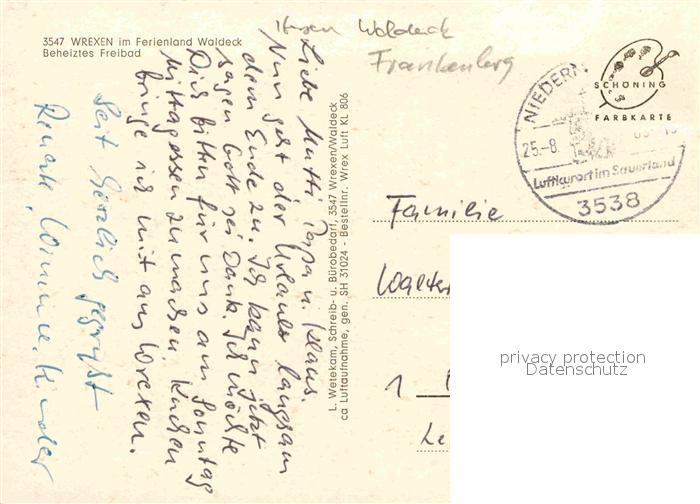 3547 WREXEN im Ferienland Waldeck
Beheiztes Freibad
Waldeck
Frankenberg
SCHÖNING
FARBKARTE
NIEDERM
25.-8.
Luftkurort im Sauerland
3538
Liebe Mutti Papa u. Klaus.
Nun geht der Urlaub langsam
dem Ende zu. Ich kann jetzt
sagen Gott sei Dank. Ich möchte
Dich bitten für uns am Sonntag
Mittagessen zu machen. Kuchen
bringe ich mit aus Wrexen.
Seit herzlich gegrüßt
Renate, u. Kinder
L. Wetekam, Schreib- u. Bürobedarf, 3547 Wrexen/Waldeck
ca Luftaufnahme, gen. SH 31024 - Bestellnr. Wrex Luft KL 806
Familie
Walter
1
privacy protection
Datenschutz